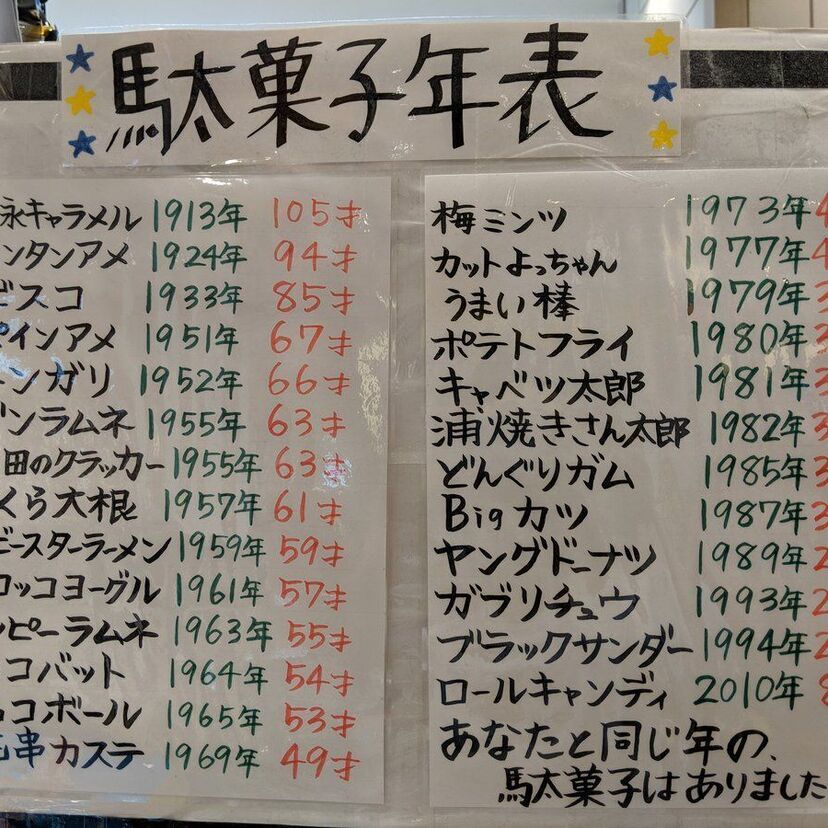 駄菓子年表
永キャラメル 1913年 105才
ンタンアメ 1924年 94才
ビスコ 1933年 85才
パインアメ 1951年 67才
ンガリ 1952年 66才
ンラムネ 1955年 63才
田のクラッカー 1955年 63才
くら大根 1957年 61才
ビースターラーメン 1959年 59才
ロッコヨーグル 1961年 57才
ンピーラムネ 1963年 55才
コバット 1964年 54才
ョコボール 1965年 53才
串カステ 1969年 49才
梅ミンツ 1973年 4
カットよっちゃん 1977年 4
うまい棒 1979年 3
ポテトフライ 1980年 3
キャベツ太郎 1981年 3
蒲焼きさん太郎 1982年 3
どんぐりガム 1985年 3
Bigカツ 1987年 3
ヤングドーナツ 1989年 2
ガブリチュウ 1993年 2
ブラックサンダー 1994年 2
ロールキャンディ 2010年 8
あなたと同じ年の、
駄菓子はありました